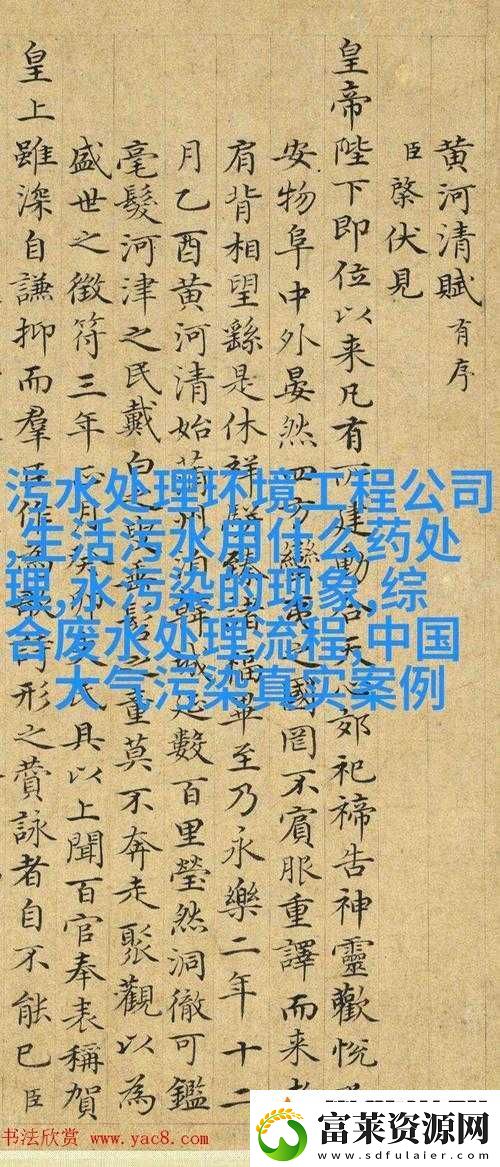 黄河清賦 有序
臣 棨伏見
皇帝陛下即位以来凡有所建動合天心郊祀禘告神靈歡悅
安物阜中外晏然四方蠻夷之國罔不賓服重譯而来
肩背相望繇是休祥臻諸福畢至乃永樂二年十二
月乙酉黄河清始蒲州韓城延數百里瑩然洞徹可鑑
毫髮河津之民戴白之叟垂髫之童莫不奔走聚觀以為
盛世之徵符三年正月癸卯民具以上聞百官奉表稱賀
皇上雖深自謙抑而羣臣作為歌詩形之賛詠者自不能已臣
污水处理环境工程公司
,生活污水用什么药处
理,水污染的现象,综
合废水处理流程,中国
大气污染真实案例
书法欣赏 www.yac8.com
富莱资源网
www.sdfulaier.com